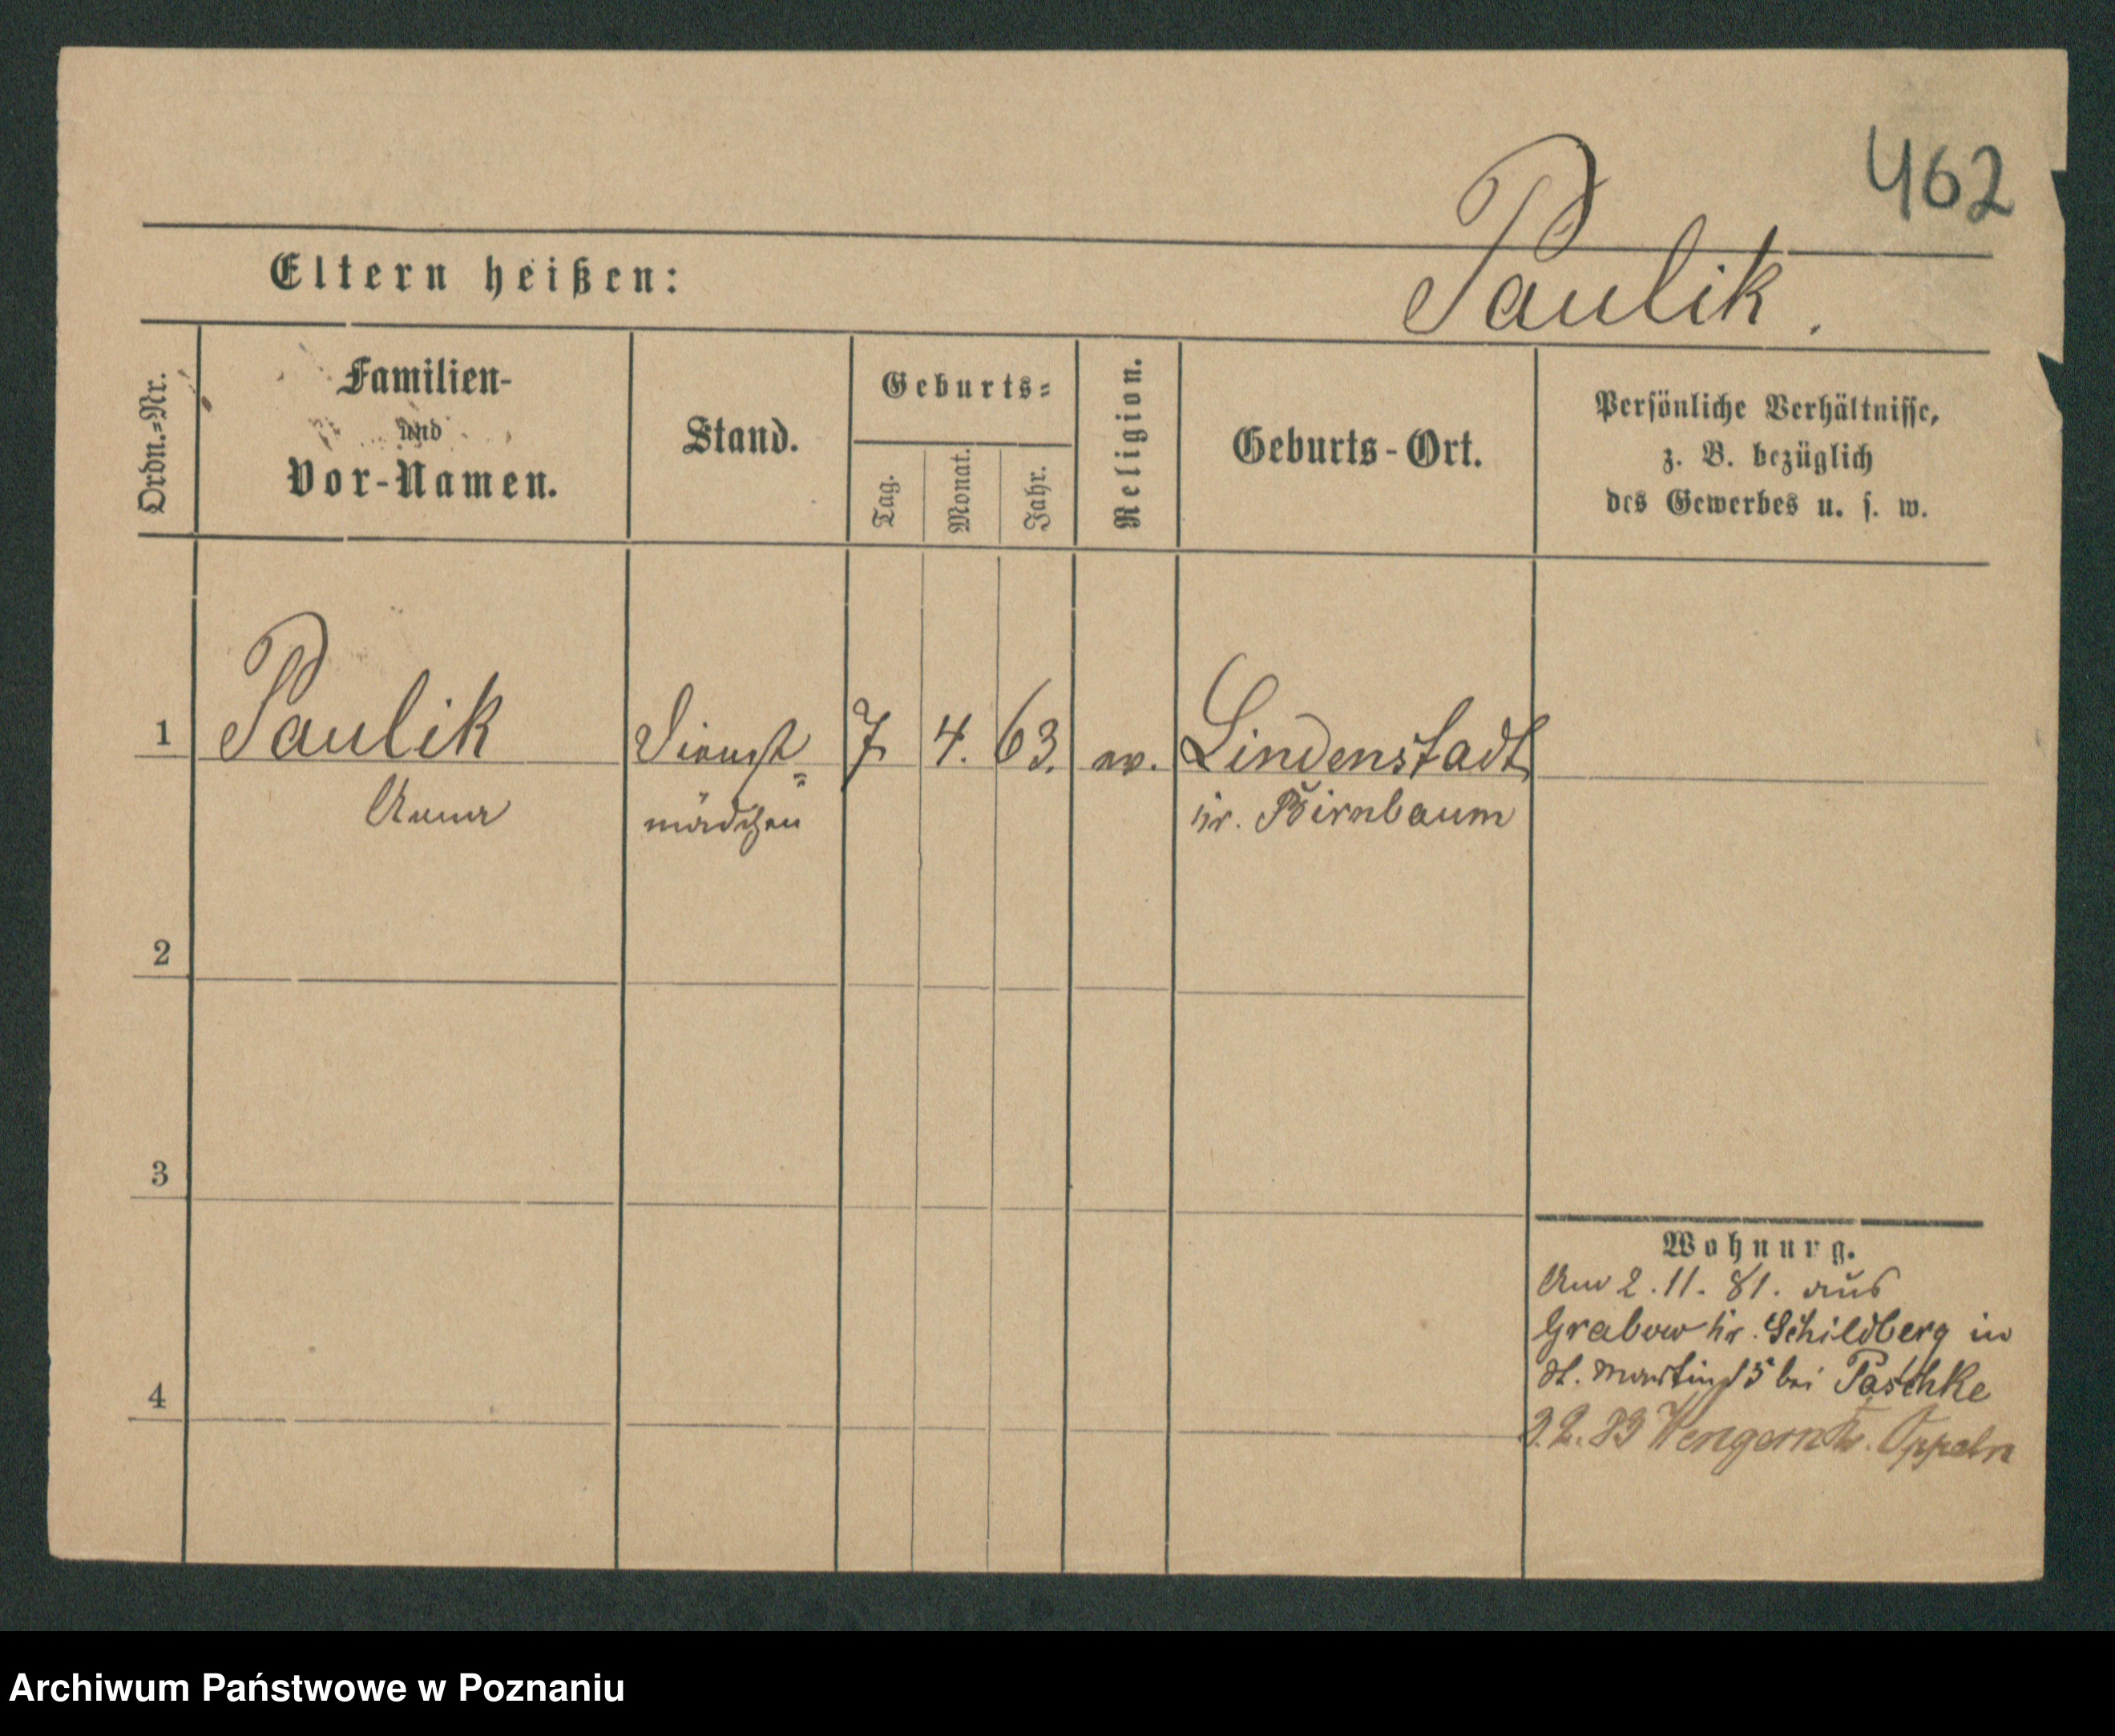 462
Paulik.
Eltern heißen:
Ordn.-Nr.
Familien-
und
Vor-Namen.
Stand.
Geburts-
Tag.
Monat.
Jahr.
Religion.
Geburts-Ort.
Persönliche Verhältnisse,
z. B. bezüglich
des Gewerbes u. s. w.
1 Paulik Dienst- 7. 4. 63. ev. Lindenstadt
Anna mädchen Kr. Birnbaum
2
3
4
Wohnung.
Am 2.11.81. aus
Grabow Kr. Schildberg in
St. Martinst 5 bei Paschke
2.83 Wengern Kr. Oppeln
Archiwum Państwowe w Poznaniu